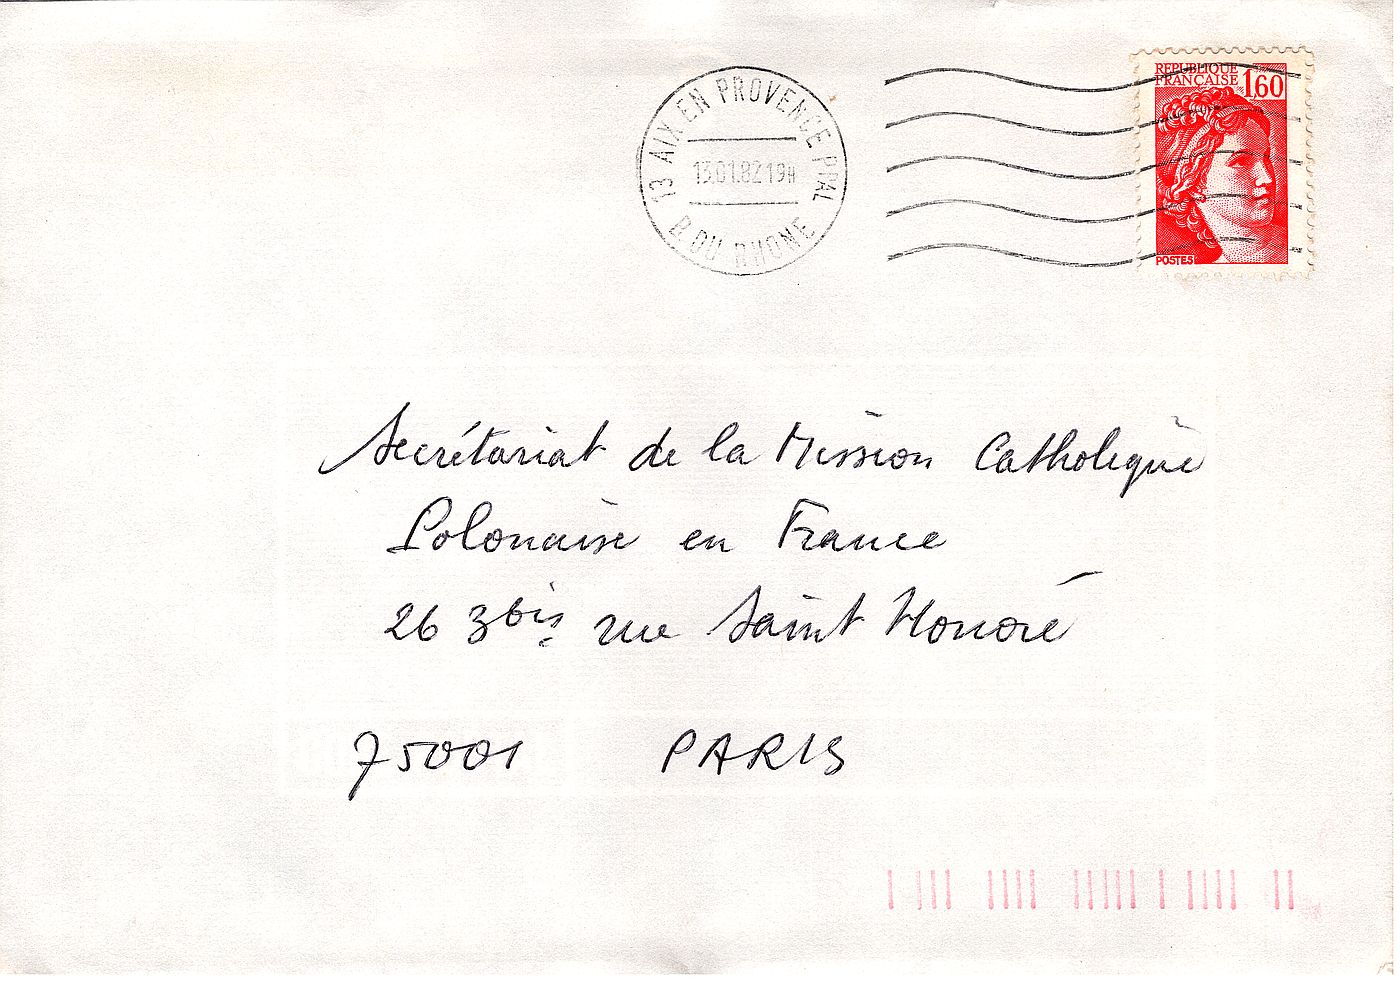 13 AIX EN PROVENCE PPAL
13.01.82 19H
B. DU RHONE
REPUBLIQUE
FRANÇAISE 1,60
POSTES
Secrétariat de la Mission Catholique
Polonaise en France
263bis rue Saint Honoré
75001 PARIS